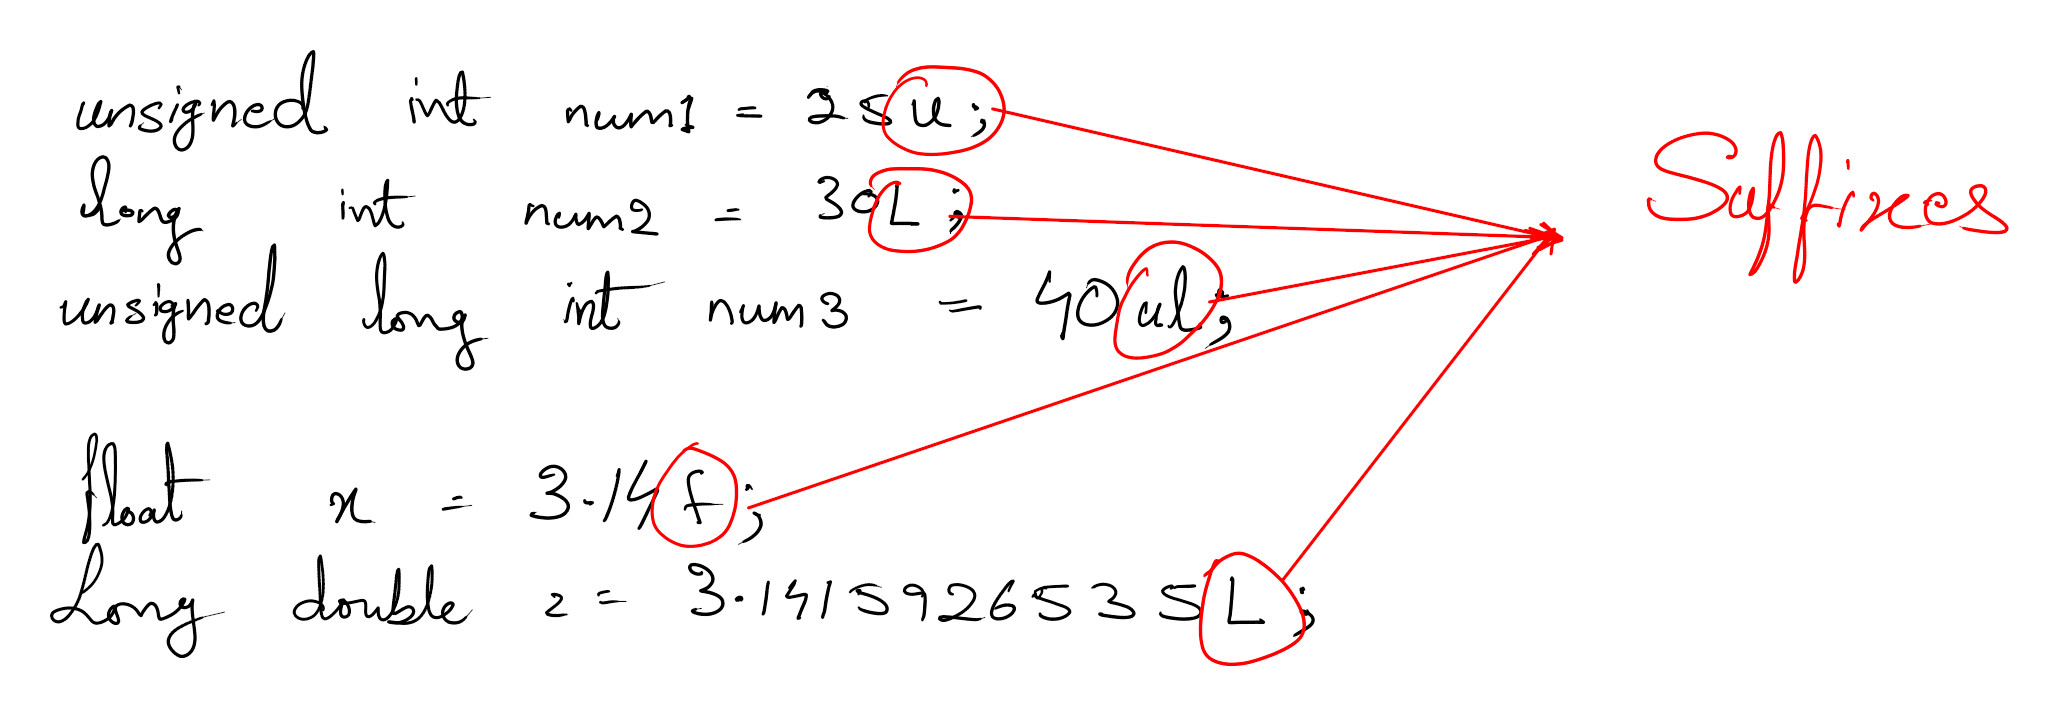 unsigned int num1 = 25u;
long int num2 = 30L;
unsigned long int num3 = 40ul;
Suffixes
float x = 3.14f;
Long double z = 3.1415926535L;